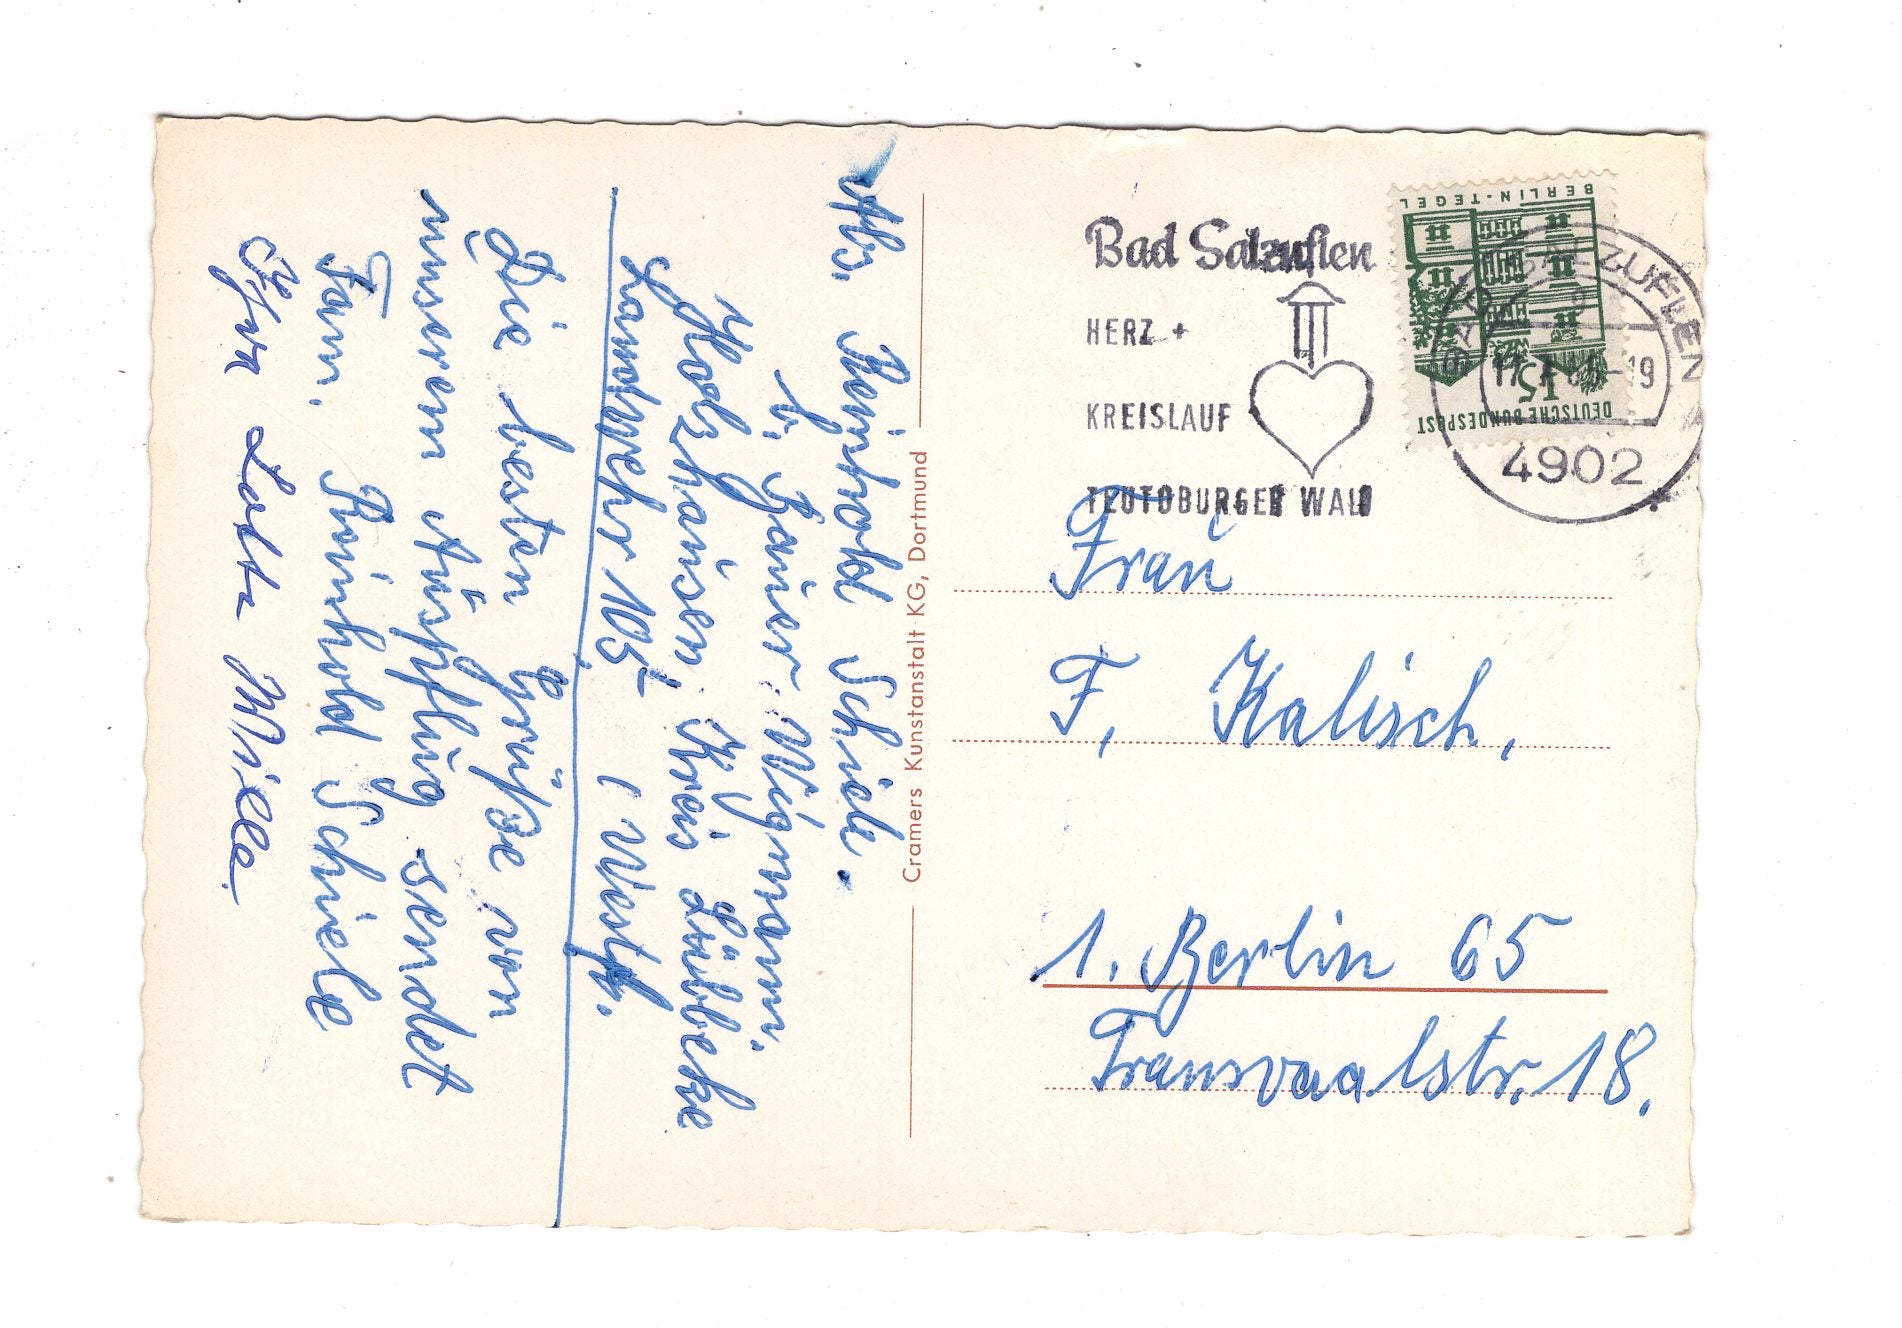 Abs. Reinhold Schiele.
b. Bauer Wigmann.
Holzhausen, Kreis Lübbecke
Landwehr 105 (Westf.
Die besten Grüße von
unserem Ausflug sendet
Fam. Reinhold Schiele
Cramers Kunstanstalt KG, Dortmund
Bad Salzuflen
HERZ +
KREISLAUF
TEUTOBURGER WALD
BERLIN-TEGEL
15
DEUTSCHE BUNDESPOST
BAD SALZUFLEN
-19
4902
Frau
F. Kalisch.
1. Berlin 65
Transvaalstr. 18.